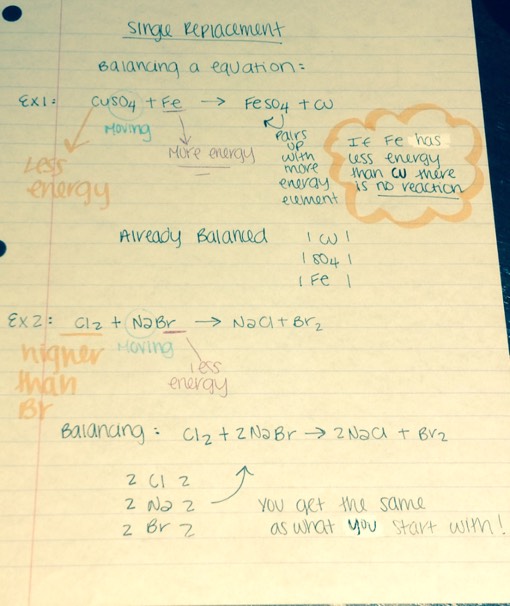 Single Replacement
Balancing a equation:
Ex1: CuSO4 + Fe → FeSO4 + Cu
Moving
Less
energy
More energy
Pairs
up
with
more
energy
element
If Fe has
less energy
than Cu there
is no reaction
Already Balanced
1 Cu 1
1 SO4 1
1 Fe 1
Ex2: Cl2 + NaBr → NaCl + Br2
higher
than
Br
Moving
Less
energy
Balancing: Cl2 + 2NaBr → 2NaCl + Br2
2 Cl 2
2 Na 2
2 Br 2
You get the same
as what you start with!